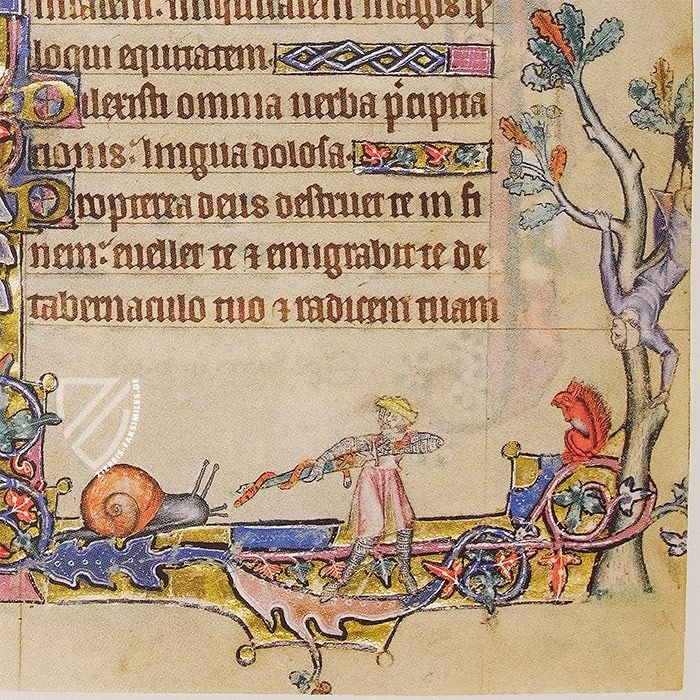 loqui equitatem.
Dilexisti omnia uerba p̄cipita
tionis: lingua dolosa.
Propterea deus destruet te in fi
nem: euellet te ⁊ emigrabit te de
tabernaculo tuo ⁊ radicem tuam
ZIEREIS-FAKSIMILES.DE